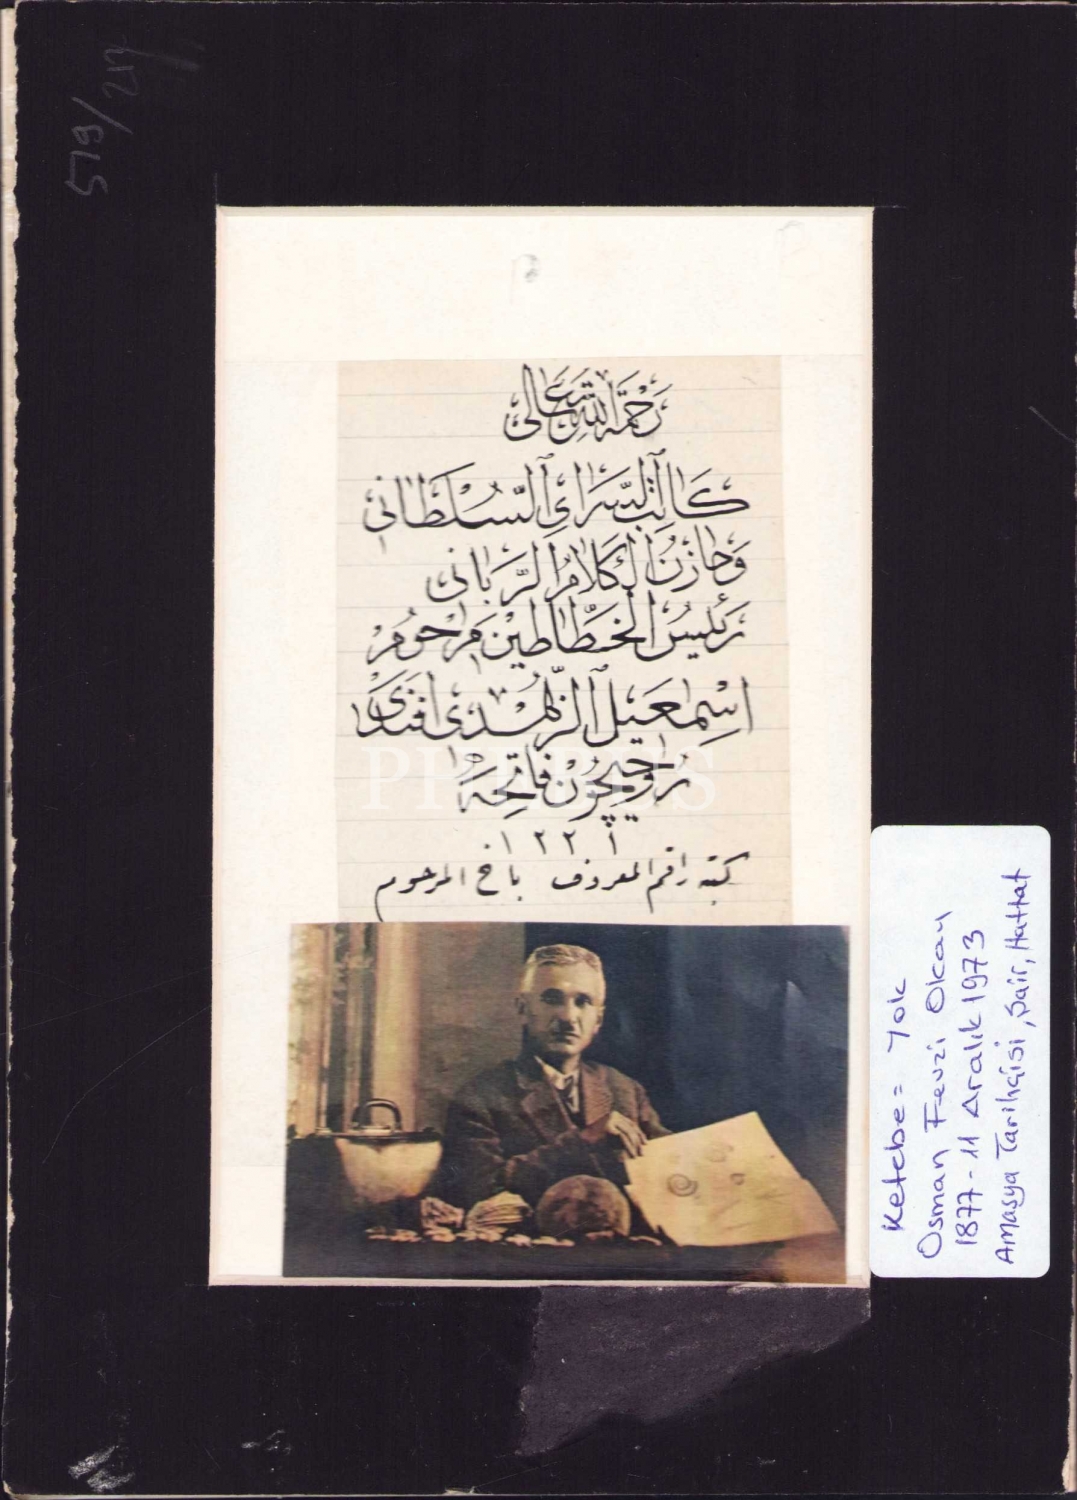 519/217
رَحْمَةُ اللّٰهِ تَعَالٰى
كَاتِبُ السَّرَاىِ السُّلْطَانِى
وَحَازِنُ الْكَلَامُ الرَّبَانِى
رَئِيسُ الْخَطَّاطِينْ مَرْحُومْ
اِسْمَاعِيلُ الزُّهْدِى افَندِى
رُوحِيچُونْ فَاتِحَه
١٢٢١
كتبه راقم المعروف باخ المرحوم
PHEBUS
Ketebe= Yok
Osman Fevzi Olcay
1877-11 Aralık 1973
Amasya Tarihçisi, Şair, Hattat